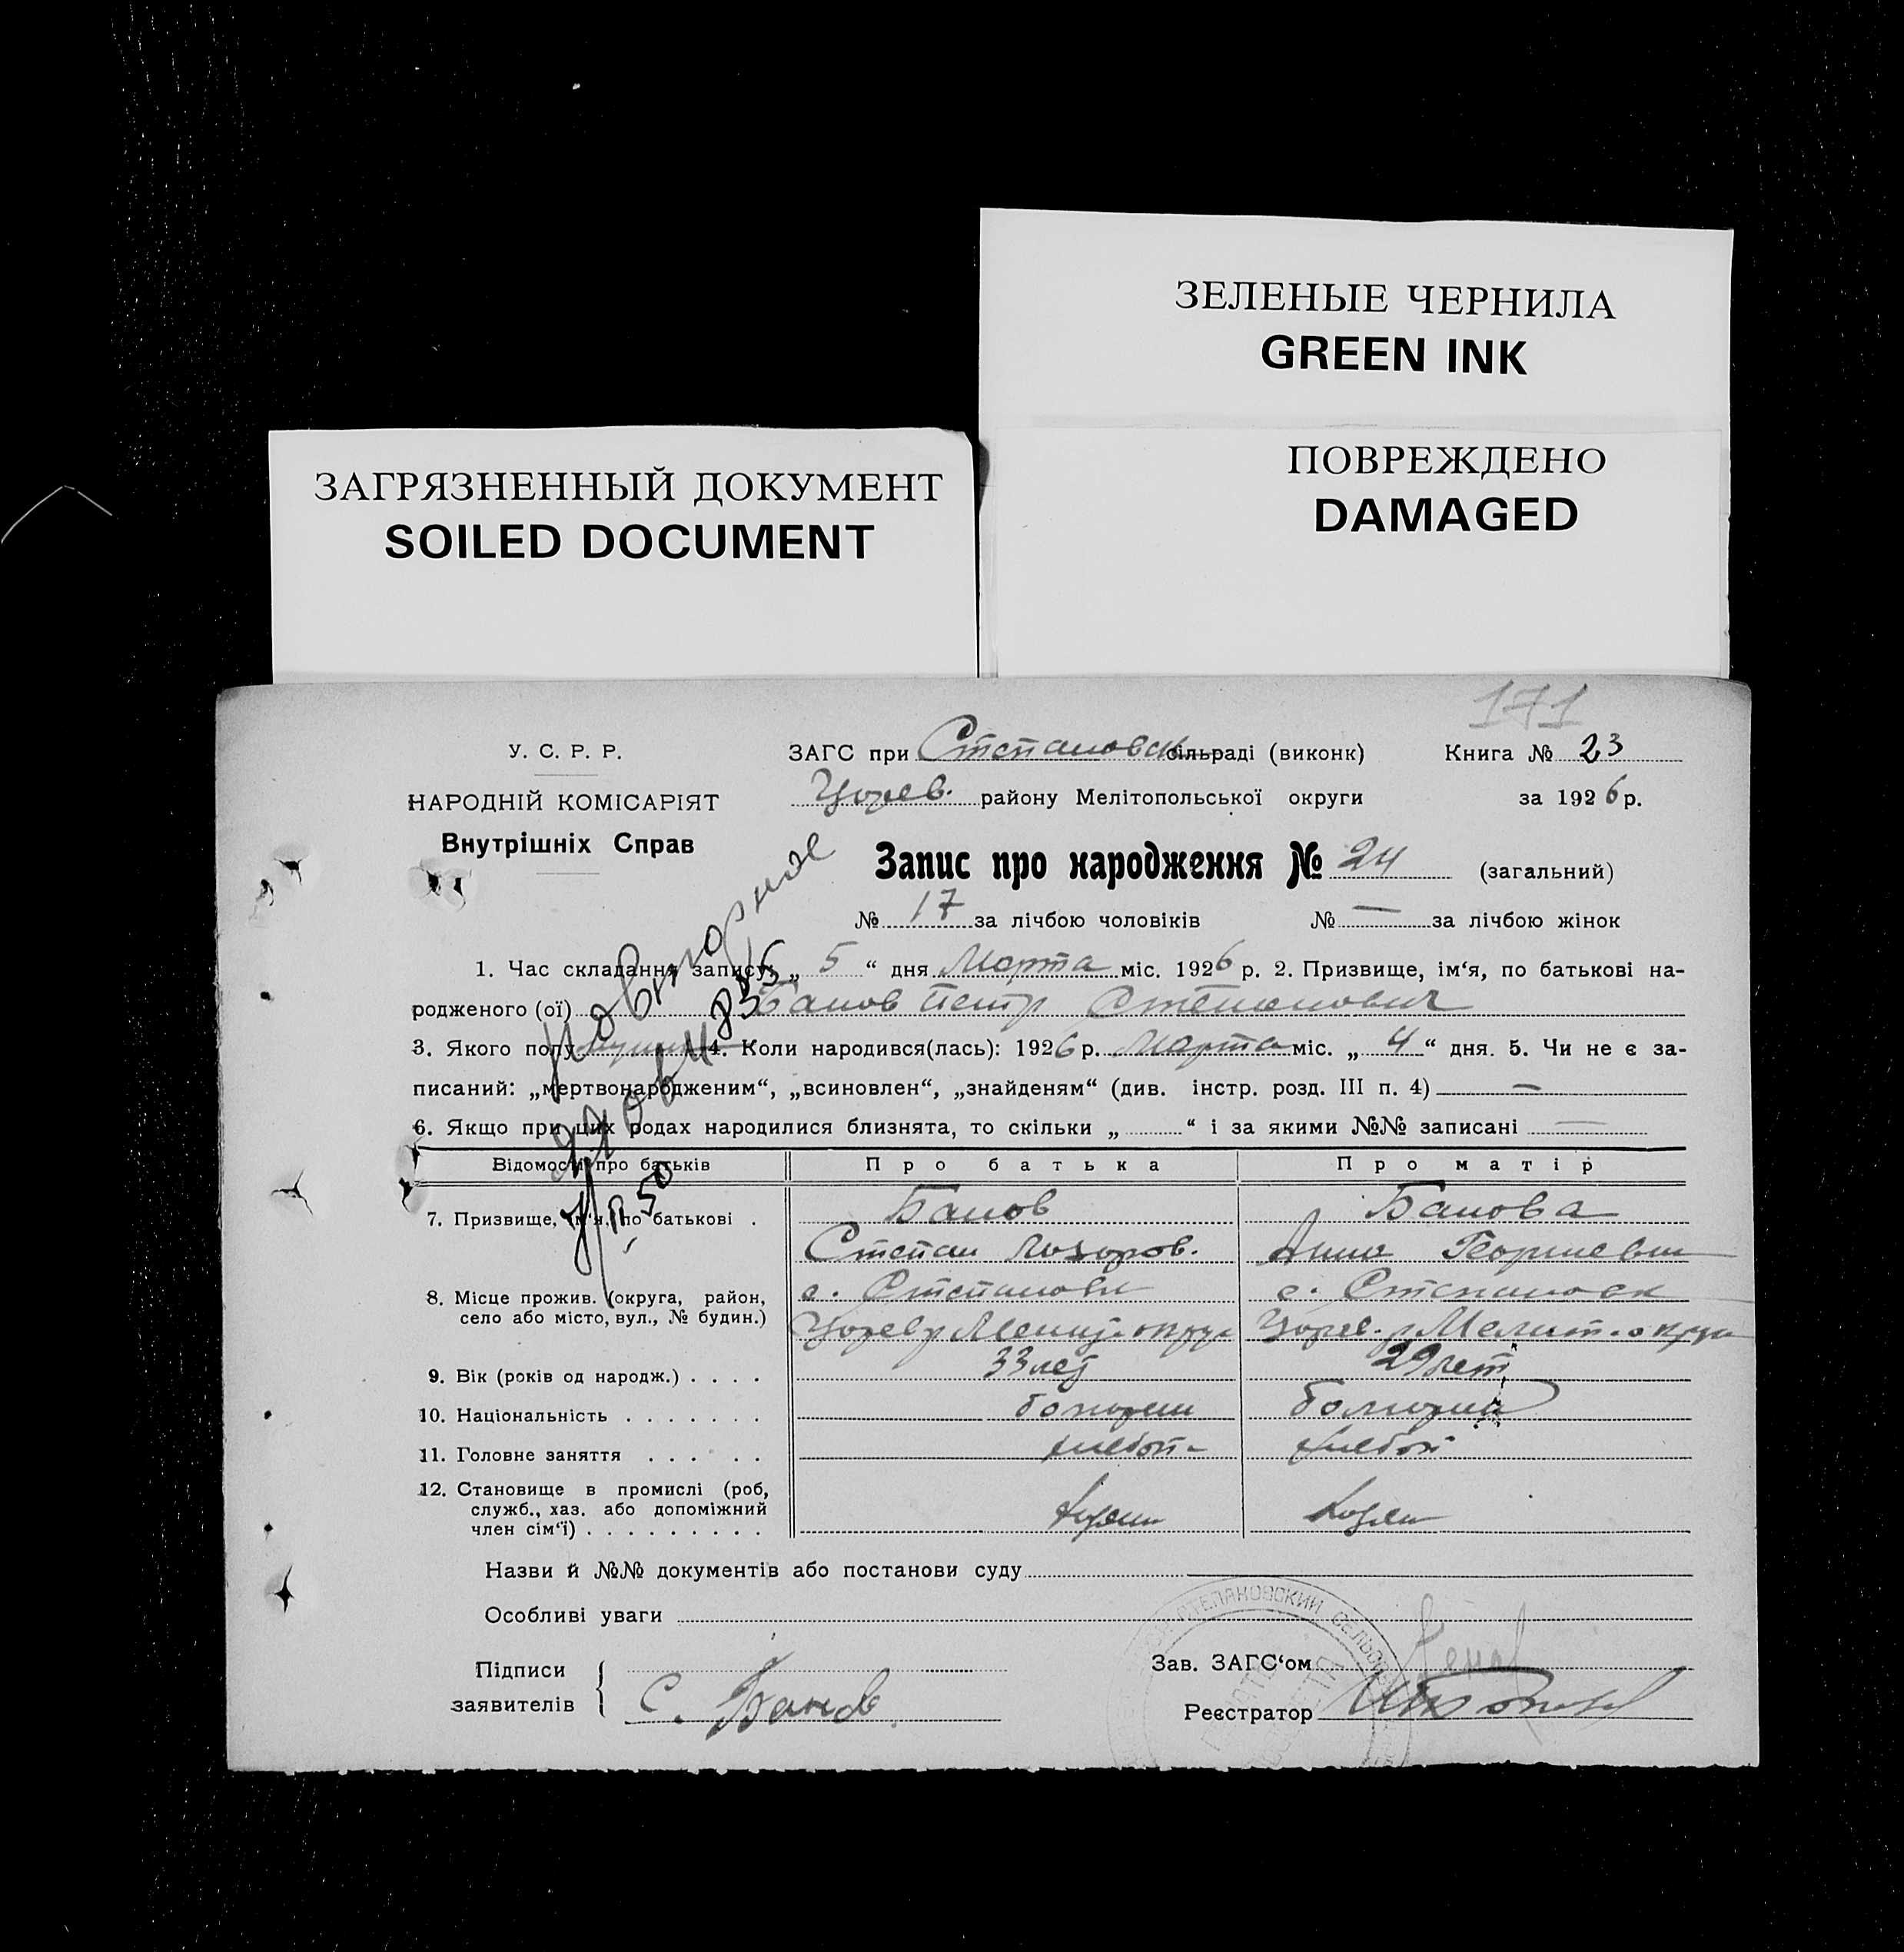 ЗЕЛЕНЫЕ ЧЕРНИЛА
GREEN INK
ПОВРЕЖДЕНО
DAMAGED
ЗАГРЯЗНЕННЫЙ ДОКУМЕНТ
SOILED DOCUMENT
171
У. С. Р. Р.
НАРОДНІЙ КОМІСАРІЯТ
Внутрішніх Справ
ЗАГС при Степановск сільраді (виконк) Книга № 23
Цорев. району Мелітопольської округи за 1926 р.
Запис про народження № 24 (загальний)
№ 17 за лічбою чоловіків № — за лічбою жінок
повторное
1. Час складання запису: „ 5 “ дня Марта міс. 1926 р. 2. Призвище, ім‘я, по батькові на-
родженого (ої) Банов Петр Степанович
3. Якого полу 4. Коли народився(лась): 1926 р. Марта міс. „ 4 “ дня. 5. Чи не є за-
писаний: „мертвонародженим“, „всиновлен“, „знайденям“ (див. інстр. розд. III п. 4) —
6. Якщо при цих родах народилися близнята, то скільки „ “ і за якими №№ записані —
Відомости про батьків Про батька Про матір
7. Призвище, ім‘я, по батькові . Банов Банова
Степан Лазоров. Анна Георгиевн
8. Місце прожив. (округа, район, село або місто, вул., № будин.) с. Степановк с. Степановк
Цорев р Мелит округ Цорев. р Мелит. округ
9. Вік (років од народж.) . . . . 33 лет 29 лет
10. Національність . . . . . . . болгарин болгарка
11. Головне заняття . . . . . . хлебоп хлебоп
12. Становище в промислі (роб, служб., хаз. або допоміжний член сім‘ї) . . . . . . . . . хозяин
Назви й №№ документів або постанови суду
Особливі уваги
СТЕПАНОВСКИЙ СЕЛЬСОВЕТ
Підписи заявителів С. Банов
Зав. ЗАГС‘ом
Реєстратор